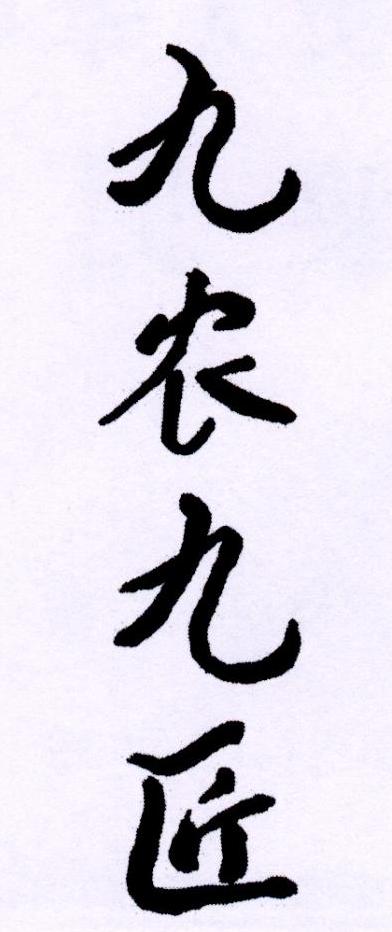 九农九匠